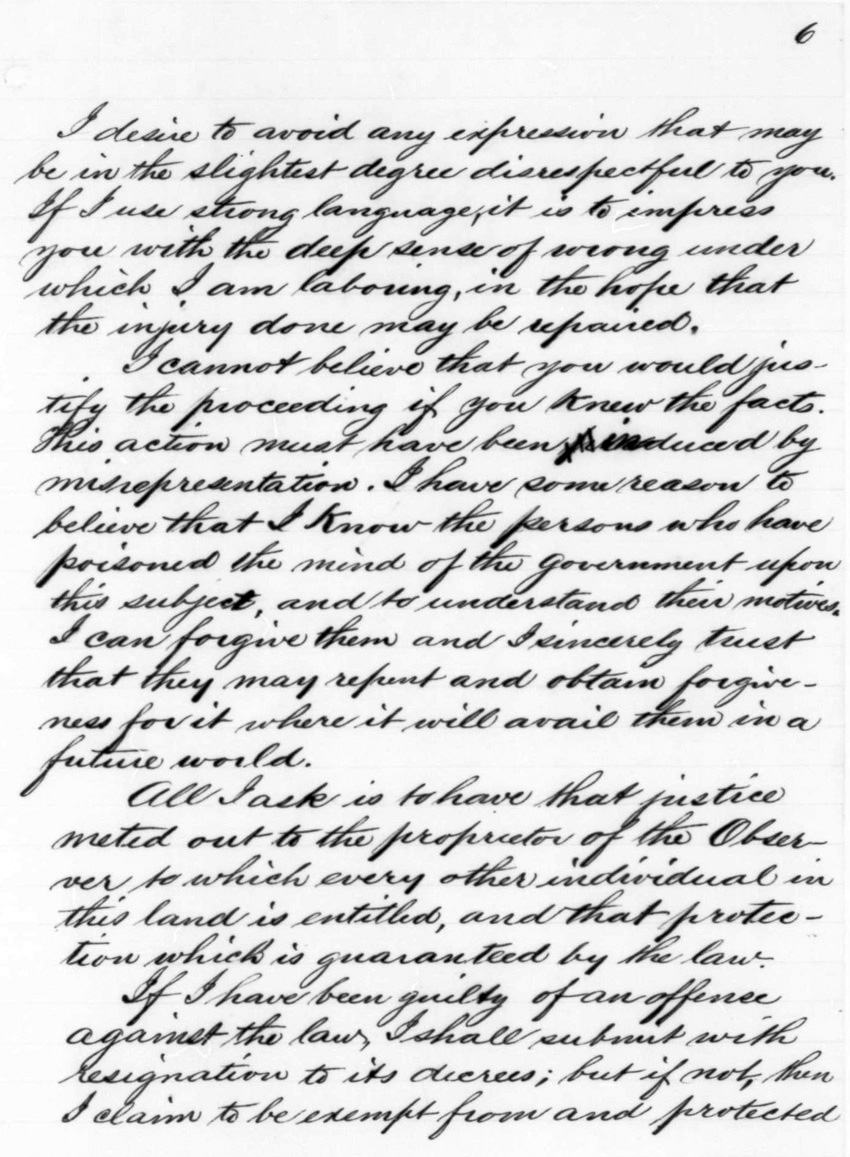 6
I desire to avoid any expression that may
be in the slightest degree disrespectful to you.
If I use strong language, it is to impress
you with the deep sense of wrong under
which I am laboring, in the hope that
the injury done may be repaired.
I cannot believe that you would jus-
tify the proceeding if you knew the facts.
This action must have been induced by
misrepresentation. I have some reason to
believe that I know the persons who have
poisoned the mind of the government upon
this subject, and to understand their motives.
I can forgive them and I sincerely trust
that they may repent and obtain forgive-
ness for it where it will avail them in a
future world.
All I ask is to have that justice
meted out to the proprietor of the Obser-
ver to which every other individual in
this land is entitled, and that protec-
tion which is guaranteed by the law.
If I have been guilty of an offense
against the law, I shall submit with
resignation to its decrees; but if not, then
I claim to be exempt from and protected